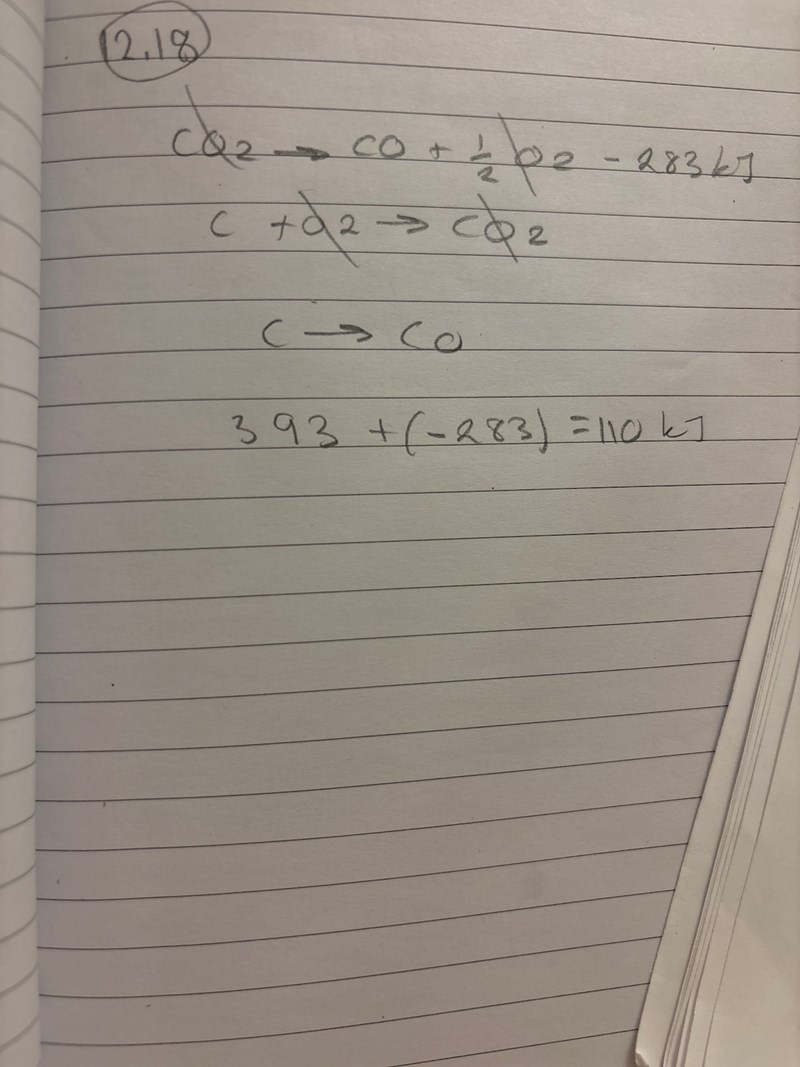 12.18
CO2 → CO + 1/2 O2 - 283 kJ
C + O2 → CO2
C → CO
393 + (-283) = 110 kJ